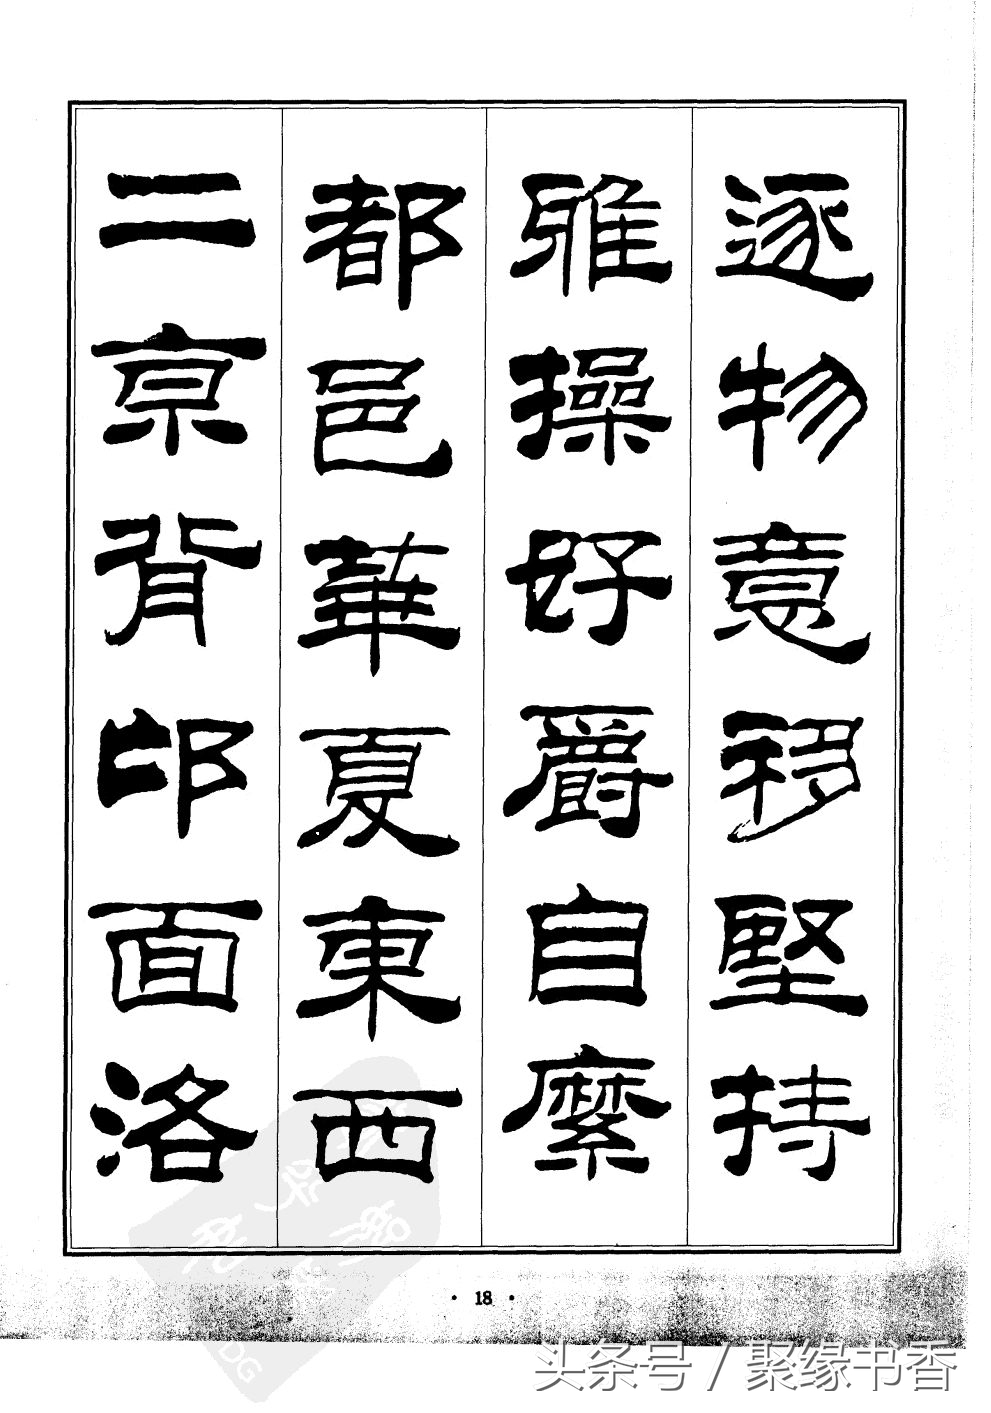 逐物意移堅持
雅操好爵自縻
都邑華夏東西
二京背邙面洛
· 18 ·
头条号 / 聚缘书香